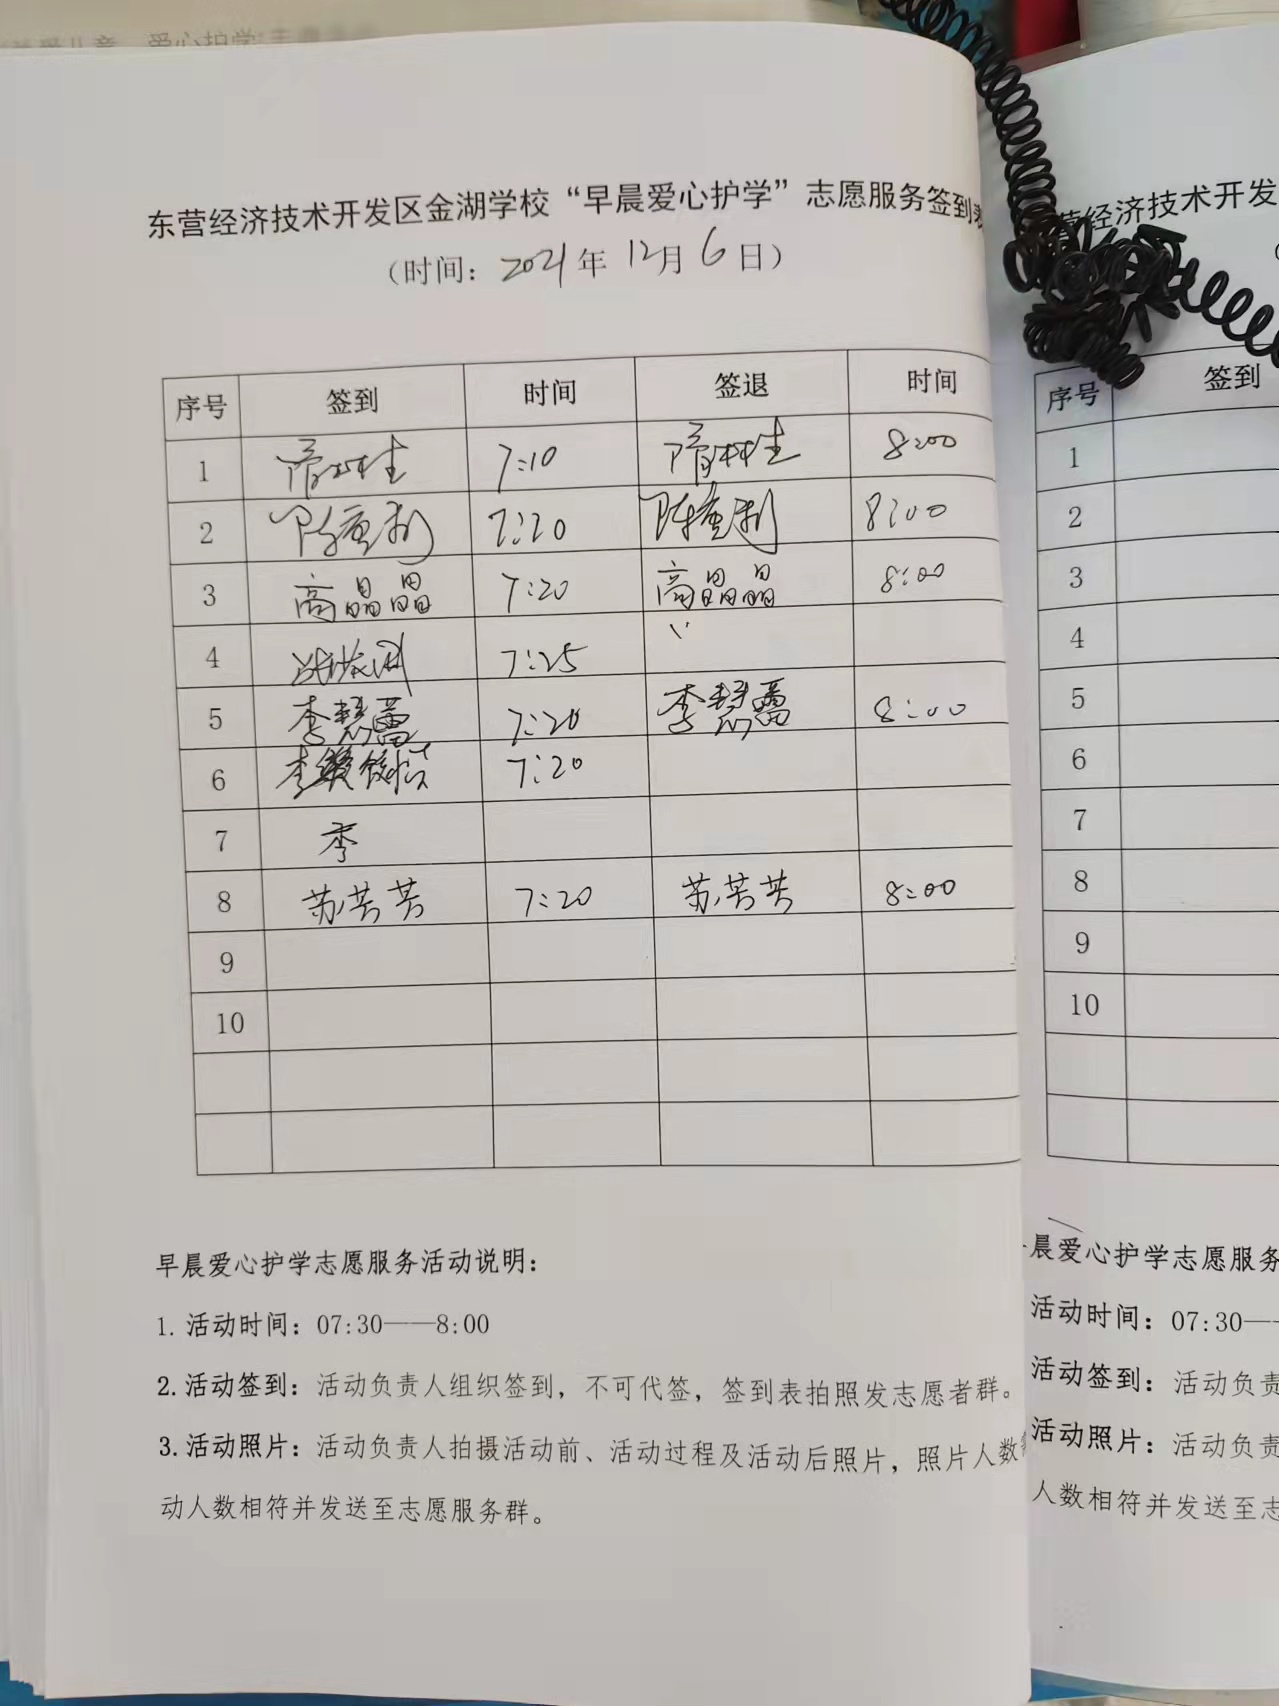 东营经济技术开发区金湖学校“早晨爱心护学”志愿服务签到表
（时间：2021年12月6日）
序号 签到 时间 签退 时间
1 隋树生 7:10 隋树生 8:00
2 陈重利 7:20 陈重利 8:00
3 高晶晶 7:20 高晶晶 8:00
4 7:25
5 李慧蕾 7:20 李慧蕾 8:00
6 李 7:20
7 李
8 苏芳芳 7:20 苏芳芳 8:00
9
10
早晨爱心护学志愿服务活动说明：
1. 活动时间：07:30——8:00
2. 活动签到：活动负责人组织签到，不可代签，签到表拍照发志愿者群。
3. 活动照片：活动负责人拍摄活动前、活动过程及活动后照片，照片人数
动人数相符并发送至志愿服务群。
营经济技术开发
序号 签到
1
2
3
4
5
6
7
8
9
10
晨爱心护学志愿服务
活动时间：07:30—
活动签到：活动负责
活动照片：活动负责
人数相符并发送至志